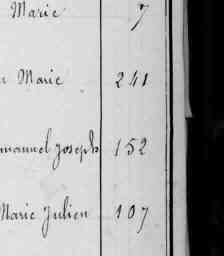 Marie 7
Marie 241
Joseph 152
Marie Julien 107